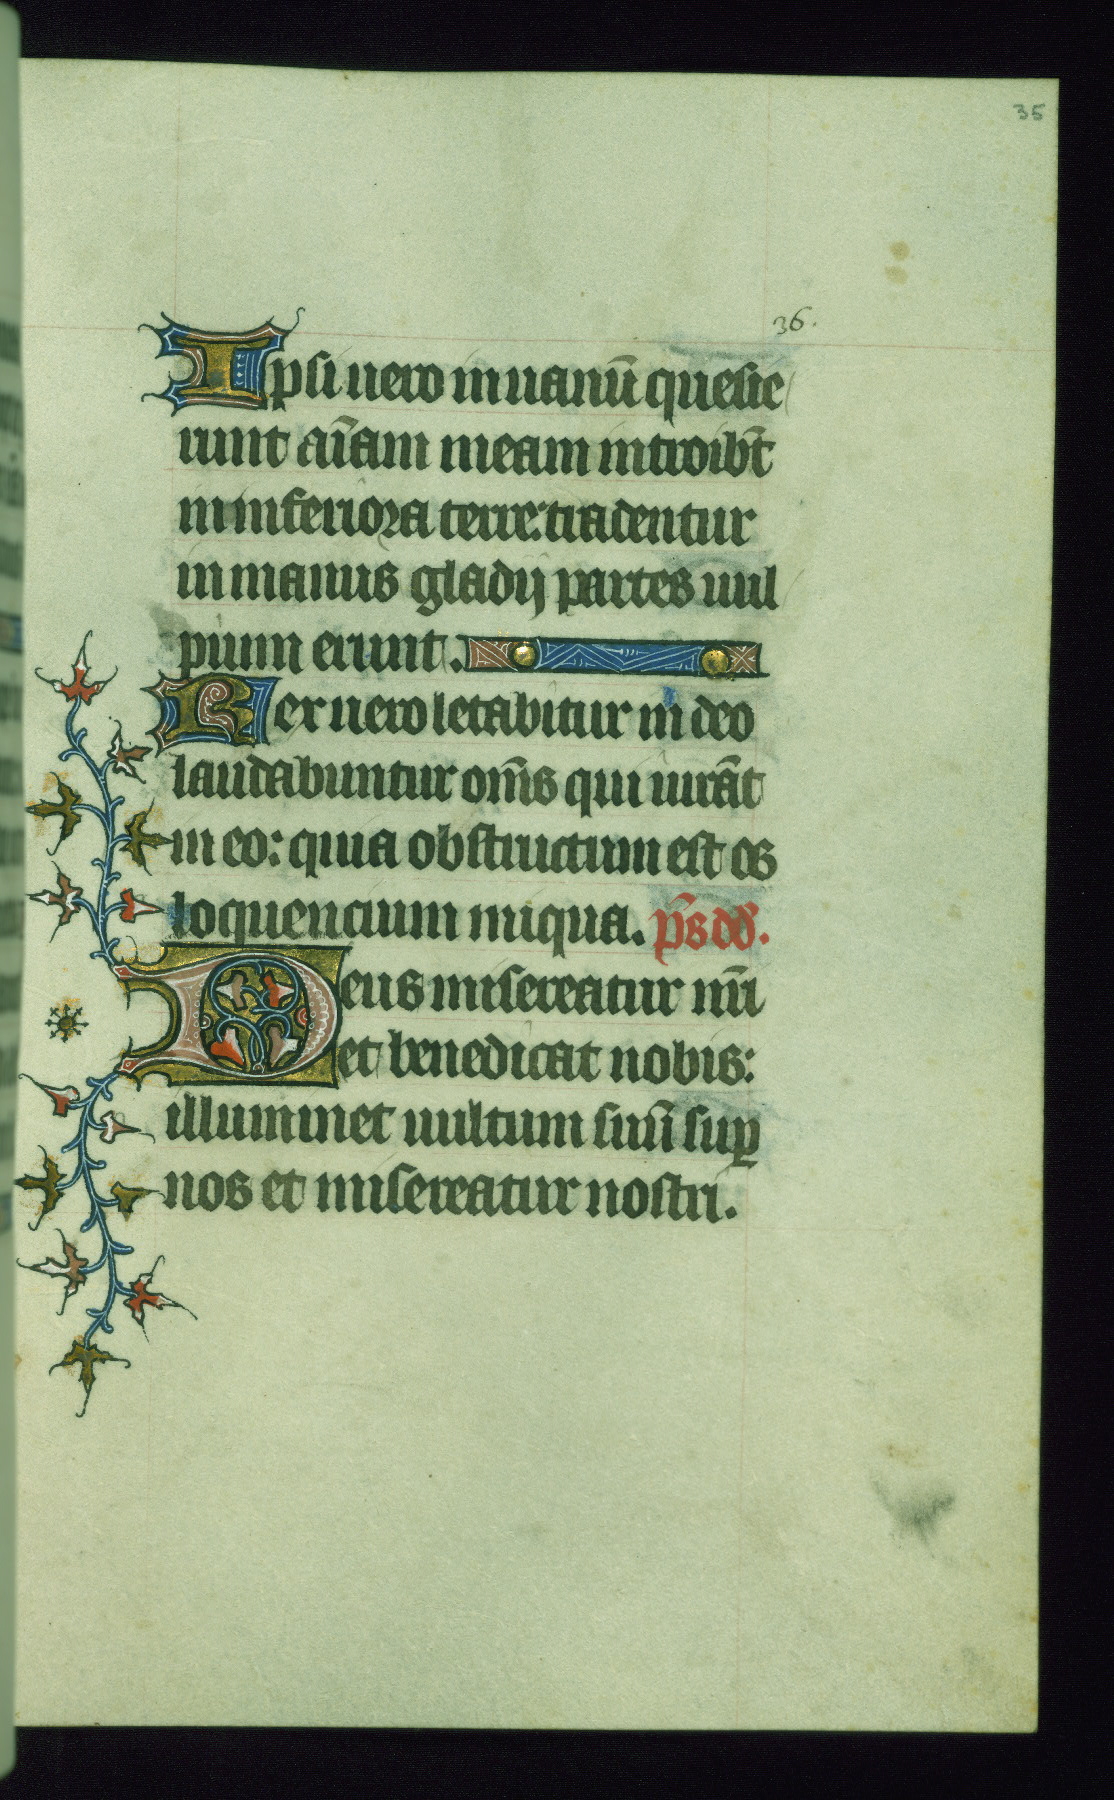 35
36.
Ipsi uero in uanū quesie
runt aīam meam introibt̄
in inferiora terre: tradentur
in manus gladij partes uul
pium erunt.
Rex uero letabitur in deo
laudabuntur om̄s qui iurāt
in eo: quia obstructum est os
loquencium iniqua. p̄s dd̄.
Deus misereatur nr̄i
et benedicat nobis:
illuminet uultum suū sup
nos et misereatur nostri.